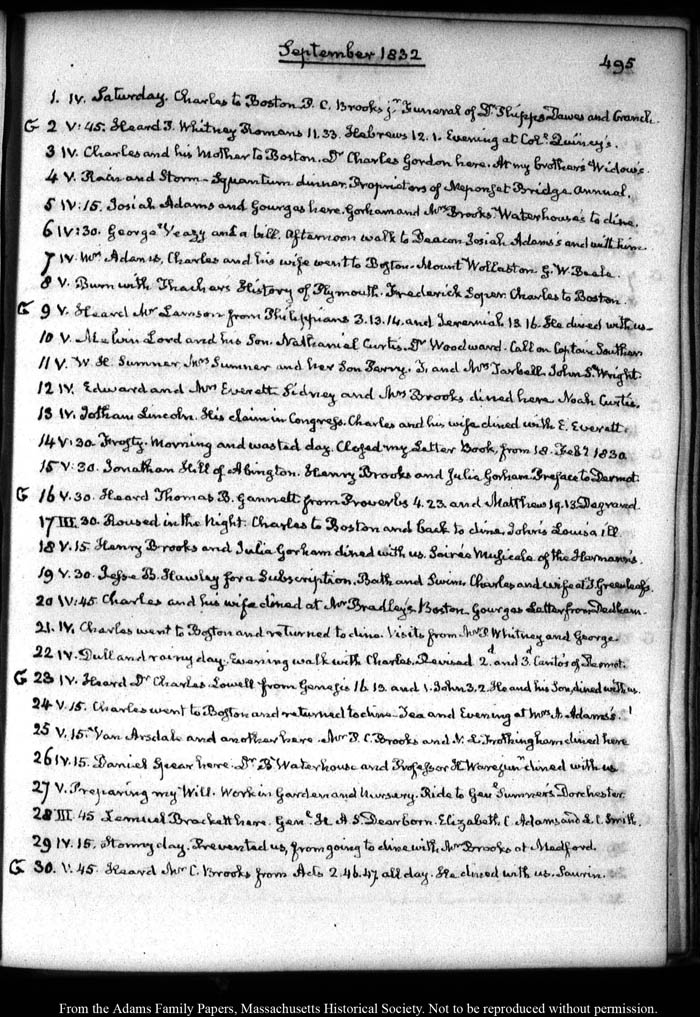 September 1832
495
1. IV. Saturday. Charles to Boston. P. C. Brooks jr. Funeral of Dr. Phipps Dawes and Cranch.
G 2 V:45. Heard F. Whitney Romans 11.33. Hebrews 12.1. Evening at Col. Quincy's.
3 IV. Charles and his Mother to Boston. Dr Charles Gordon here. At my brother's Widow's.
4 V. Rain and Storm - Squantum dinner. Proprietors of Neponset Bridge annual.
5 IV:15. Josiah Adams and Gourgas here. Gorham and Mrs Brooks. Waterhouse's to dine.
6 IV:30. George Veazy and a bill. Afternoon walk to Deacon Josiah Adams's and with him
7 IV. Mrs Adams, Charles and his wife went to Boston. Mount Wollaston. G. W. Beale.
8 V. Burn with Thacher's History of Plymouth. Frederick Soper. Charles to Boston.
G 9 V. Heard Mr Lamson from Philippians 3.13.14. and Jeremiah 13.16. He dined with us.
10 V. Melvin Lord and his Son. Nathaniel Curtis. Dr Woodward. Call on Captain Southern
11 V. W. H. Sumner, Mrs Sumner and her Son Perry. J. and Mrs Tarbell. John S. Wright.
12 IV. Edward and Mrs Everett. Sidney and Mrs Brooks dined here. Noah Curtis.
13 IV. Jotham Lincoln. His claim in Congress. Charles and his wife dined with E. Everett.
14 V:30. Frosty. Morning and wasted day. Closed my Letter Book, from 18. Feby 1830
15 V:30. Jonathan Hill of Abington. Henry Brooks and Julia Gorham. Preface to Dermot.
G 16 V.30. Heard Thomas B. Gannett from Proverbs 4.23. and Matthew 19.13. Degrand.
17 III.30. Roused in the Night. Charles to Boston and back to dine. John's Louisa ill
18 V.15 Henry Brooks and Julia Gorham dined with us. Soirée Musicale of the Harmann's.
19 V.30. Jesse B. Hawley for a Subscription. Bath and Swim. Charles and wife at J. Greenleaf's.
20 IV:45 Charles and his wife dined at Mr Bradley's Boston. Gourgas Letter from Dedham.
21. IV. Charles went to Boston and returned to dine. Visits from Mrs Whitney and George
22 IV. Dull and rainy day. Evening walk with Charles. Revised 2d and 3d Cantos of Dermot.
G 23 IV. Heard Dr Charles Lowell from Genesis 16.13. and 1. John 3.2. He and his Son, dined with us.
24 V.15. Charles went to Boston and returned to dine. Tea and Evening at Mrs A. Adams's.
25 V.15. Van Arsdale and another here. Mr P. C. Brooks and N. L. Frothingham dined here
26 IV.15. Daniel Spear here. Dr B Waterhouse and Professor H Ware jun. dined with us
27 V. Preparing my Will. Work in Garden and Nursery. Ride to Genl Sumner's Dorchester.
28 III.45 Lemuel Brackett here. Genl H. A. S. Dearborn. Elizabeth C. Adams and L. C. Smith.
29 IV.15. Stormy day. Prevented us, from going to dine with Mr Brooks at Medford.
G 30. V.45 Heard Mr C. Brooks from Acts 2.46.47. all day. He dined with us. Saurin.
From the Adams Family Papers, Massachusetts Historical Society. Not to be reproduced without permission.